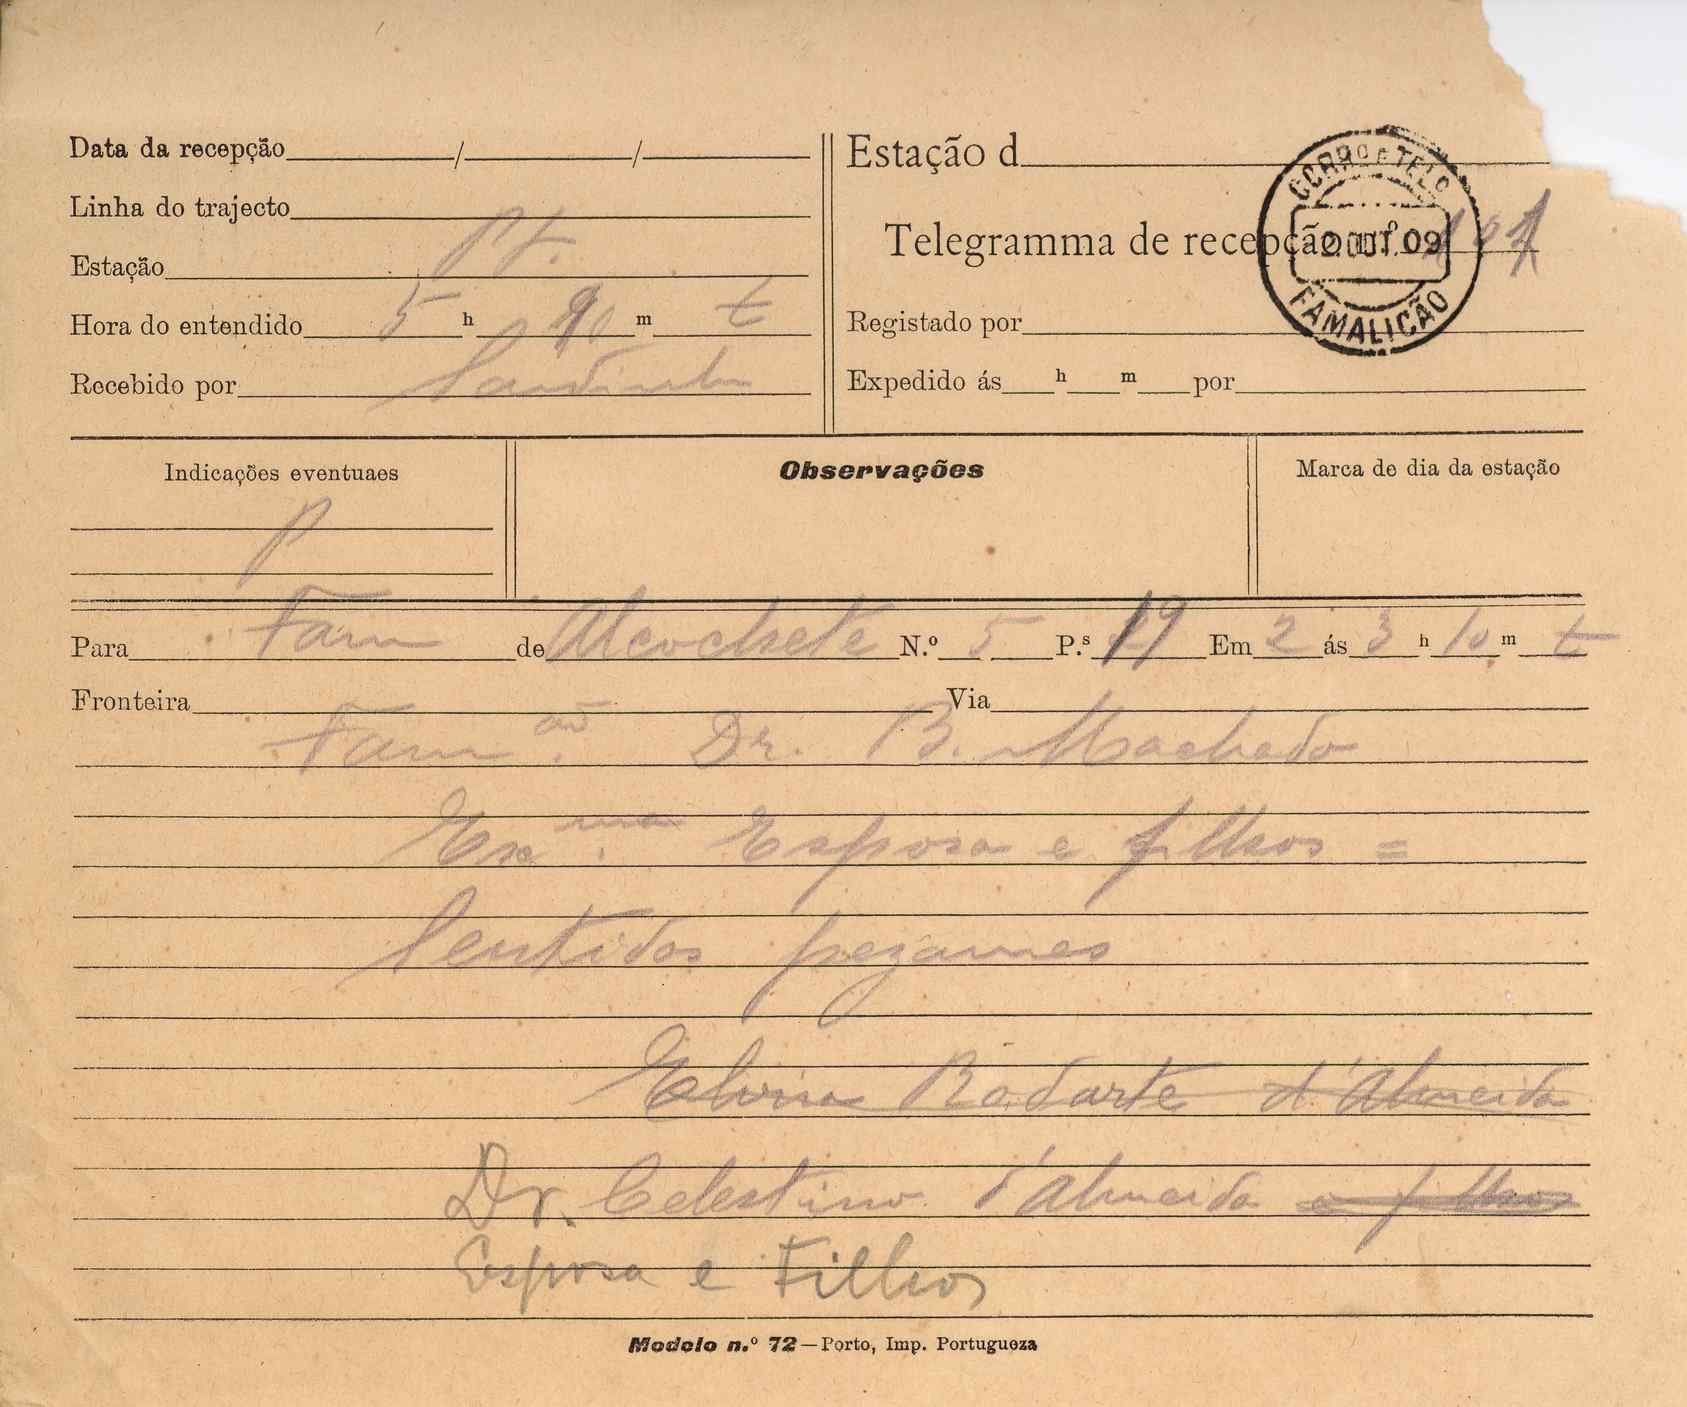 Data da recepção / /
Linha do trajecto
Estação Pt.
Hora do entendido 5 h 40 m t
Recebido por
Estação d
Telegramma de recepção n.º 101
CORRO E TELO
2 OUT. 09
FAMALICÃO
Registado por
Expedido ás h m por
Indicações eventuaes
P
Observações
Marca de dia da estação
Para Fam de Alcochete N.º 5 P.s 19 Em 2 ás 3 h 10 m t
Fronteira Via
Fam.ão Dr. B. Machado
Ex.ma Esposa e filhos =
Sentidos pezames
Elvira Rodarte d'Almeida
Dr. Celestino d'Almeida e filhos
Esposa e Filhos
Modelo n.º 72 — Porto, Imp. Portugueza